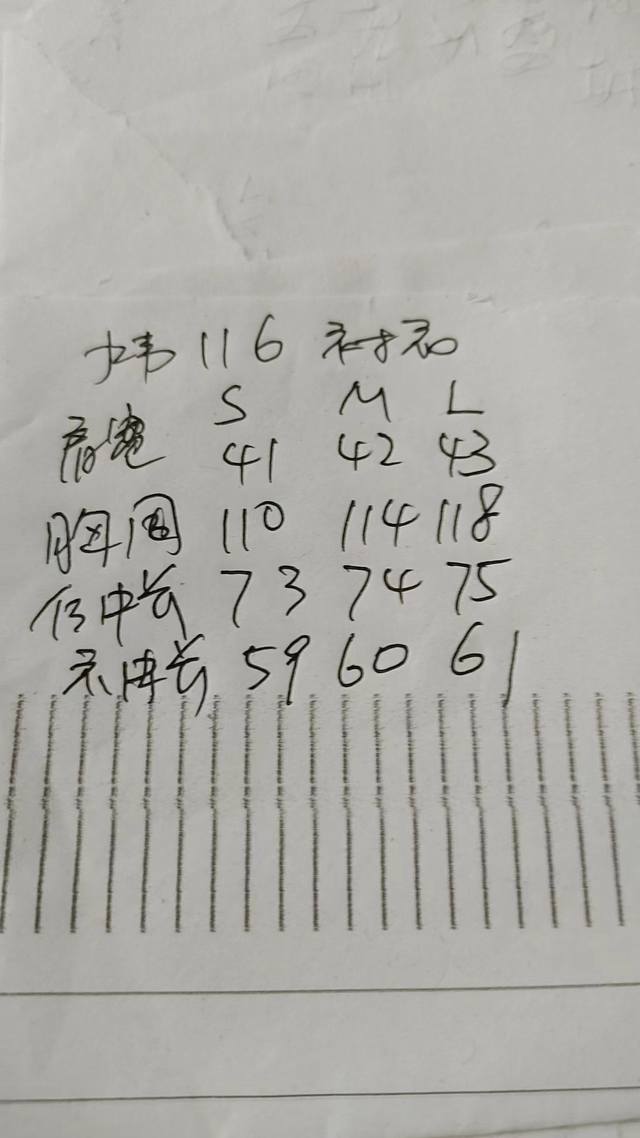 炜116 衬衣
S M L
肩宽 41 42 43
胸围 110 114 118
后中长 73 74 75
衣伸长 59 60 61